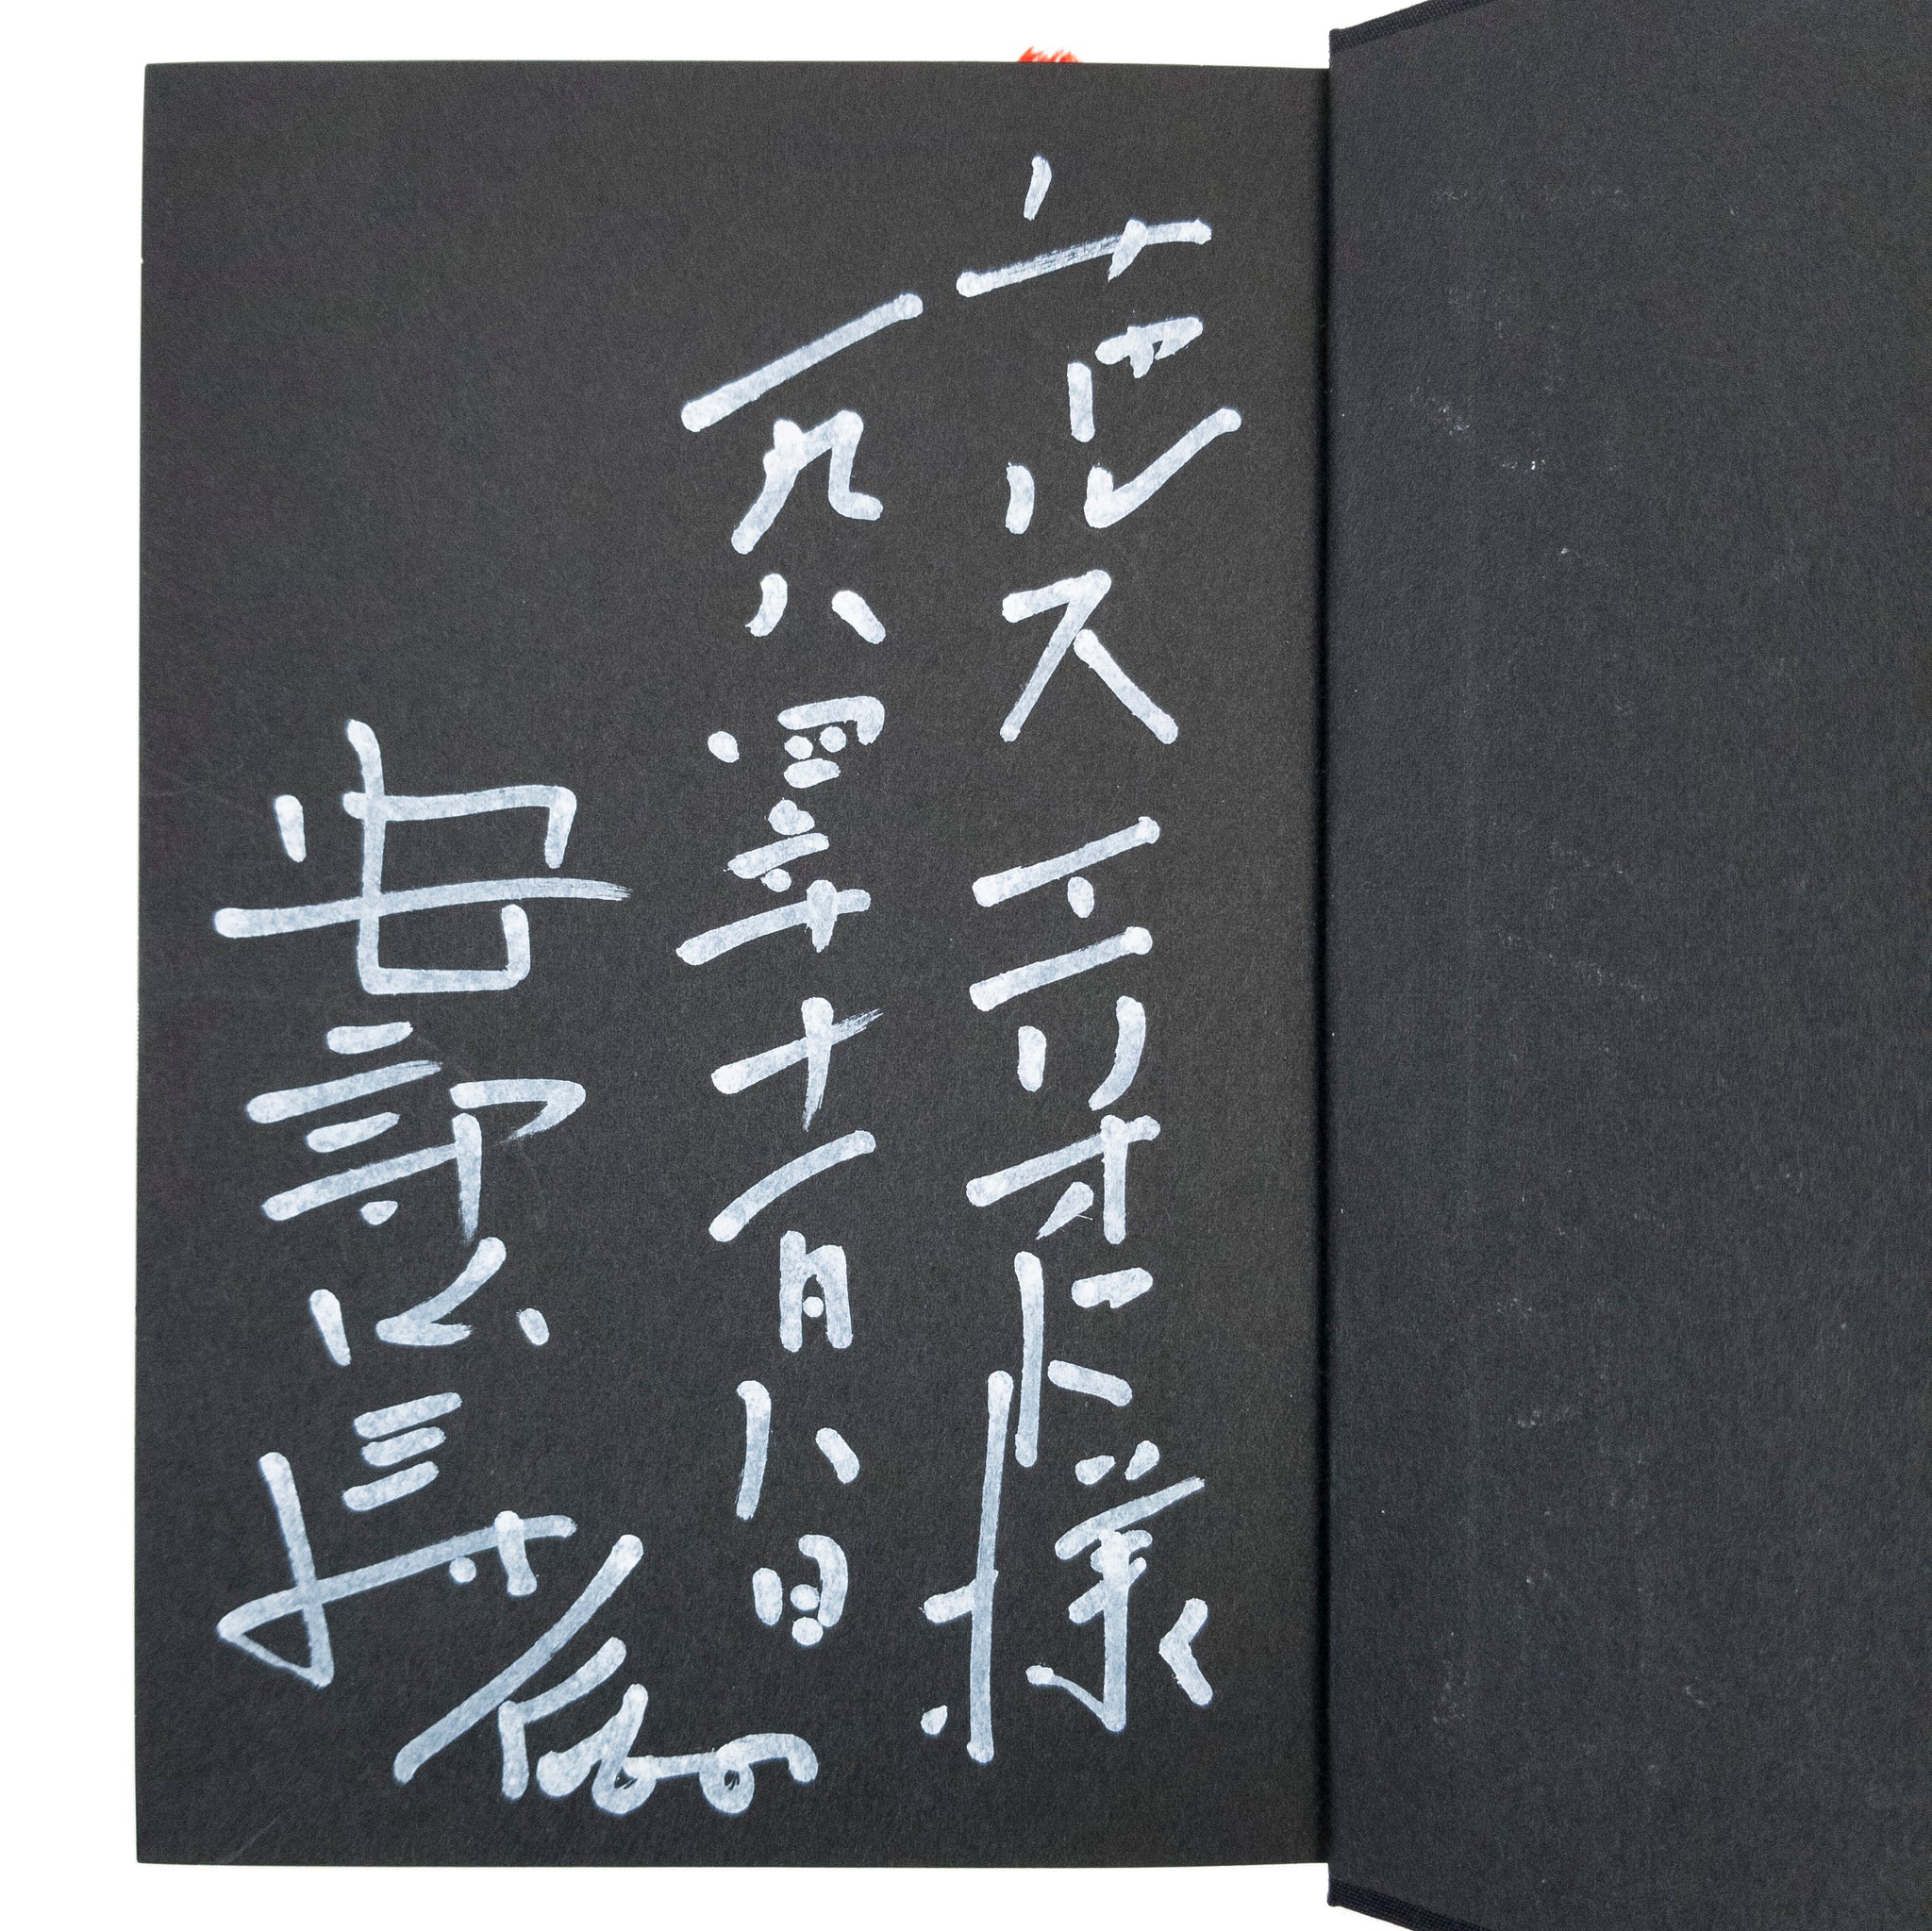 チャールスエリオット様
一九八四年十一月八日
安部公房
Kobo